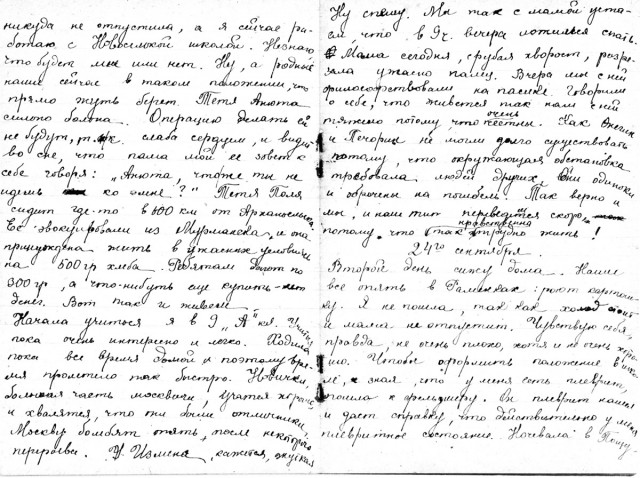 никуда не отпустила, а я сейчас ра-
ботаю с Новосильской школой. Незнаю
что будет мне или нет. Ну, а родные
наши сейчас в таком положении, что
прямо жуть берет. Тетя Анюта
сильно больна. Операцию делать ей
не будут, т.к. слаба сердцем, и видит
во сне, что папа мой ее зовет к
себе говоря: "Анюта, что же ты не
идешь ко мне?" Тетя Поля
сидит где-то в 600 км от Архангельска.
Ее эвакуировали из Мурманска, и она
принуждена жить в ужасных условиях
на 500 гр хлеба. Ребятам дают по
300 гр, а что-нибудь еще купить - нет
денег. Вот так и живем.
Начала учиться я в 9 "А" кл. Учиться
пока очень интересно и легко. Ходила
пока все время домой и поэтому вре-
мя пролетело так быстро. Новички,
большая часть москвичи, учатся хорошо
и хвалятся, что они были отличники.
Москву бомбят опять, после некоторого
перерыва. У Измена, кажется,
Ну спешу. Мы так с мамой уста-
ем, что в 9 ч. вечера ложимся спать.
Мама сегодня, рубя хворост, разре-
зала ужасно палец. Вчера мы с ней
философствовали на пасике. Говорили
о себе, что живется так нам с ней
тяжело потому, что очень честны. Как Онегин
и Печорин не могли долго существовать
потому, что окружающая обстановка
требовала людей других. Они одиноки
и обречены на погибель. Так верно и
мы, и наш тип переведется скоро
потому что так нравственно трудно жить!
24го сентября.
Второй день сижу дома. Наши
все опять в Раменках: роют картош-
ку. Я не пошла, так как холод стоит
и мама не отпустит. Чувствую себя,
правда, не очень плохо, хотя и не очень хоро-
шо. Чтобы оформить положение в шко-
ле, зная, что у меня есть плеврит,
пошла к фельдшеру. Он плеврит нашел
и даст справку, что действительно у меня
плевритное состояние. Ночевала в